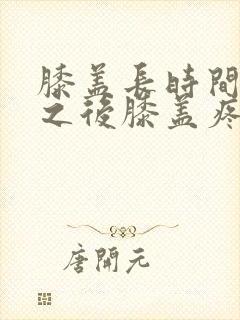 膝盖長時間
之後膝盖疼
唐開元